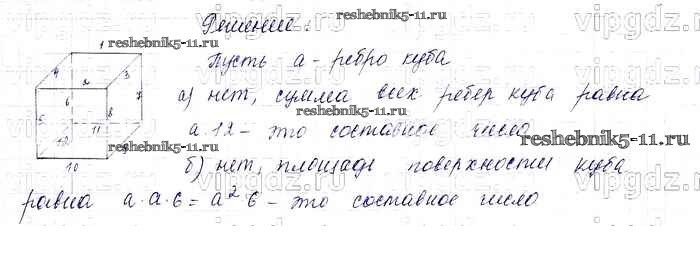 Решение:
Пусть а - ребро куба
а) нет, сумма всех ребер куба равна
а·12 - это составное число
б) нет, площадь поверхности куба
равна а·а·6 = а²6 - это составное число
1
4 2 3
6
5 8 7
12 11 9
10
reshebnik5-11.ru
reshebnik5-11.ru
reshebnik5-11.ru
reshebnik5-11.ru
vipgdz.ru